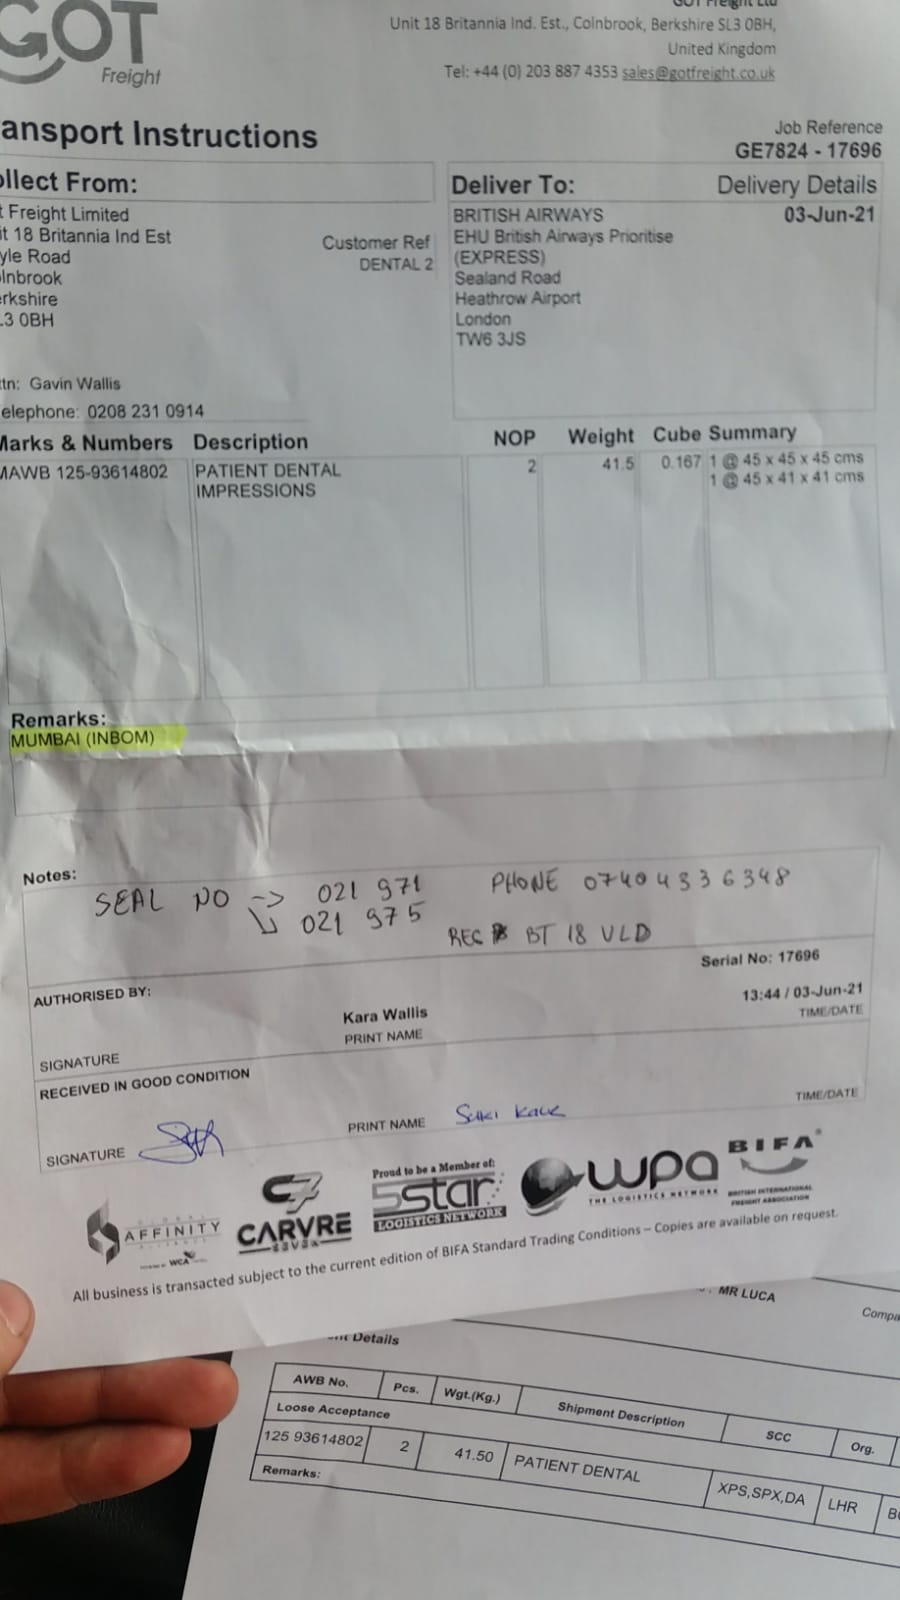 GOT
Freight
GOT Freight Ltd
Unit 18 Britannia Ind. Est., Colnbrook, Berkshire SL3 0BH,
United Kingdom
Tel: +44 (0) 203 887 4353 sales@gotfreight.co.uk
ansport Instructions
Job Reference
GE7824 - 17696
ollect From:
t Freight Limited
it 18 Britannia Ind Est
yle Road
lnbrook
erkshire
L3 0BH
Customer Ref
DENTAL 2
Deliver To:
Delivery Details
BRITISH AIRWAYS
03-Jun-21
EHU British Airways Prioritise
(EXPRESS)
Sealand Road
Heathrow Airport
London
TW6 3JS
ttn: Gavin Wallis
elephone: 0208 231 0914
Marks & Numbers Description NOP Weight Cube Summary
MAWB 125-93614802 PATIENT DENTAL 2 41.5 0.167 1 @ 45 x 45 x 45 cms
IMPRESSIONS 1 @ 45 x 41 x 41 cms
Remarks:
MUMBAI (INBOM)
Notes:
SEAL NO -> 021 971 PHONE 07404336348
↳ 021 975
REG BT 18 VLD
Serial No: 17696
AUTHORISED BY:
Kara Wallis 13:44 / 03-Jun-21
SIGNATURE PRINT NAME TIME/DATE
RECEIVED IN GOOD CONDITION
SIGNATURE PRINT NAME Suki Kaur TIME/DATE
AFFINITY
WCA
C7
CARVRE
SEVEN
Proud to be a Member of:
5star
LOGISTICS NETWORK
wpa
THE LOGISTICS NETWORK
BIFA
BRITISH INTERNATIONAL
FREIGHT ASSOCIATION
All business is transacted subject to the current edition of BIFA Standard Trading Conditions – Copies are available on request.
MR LUCA
Compa
nt Details
AWB No. Pcs. Wgt.(Kg.) Shipment Description SCC Org.
Loose Acceptance
125 93614802 2 41.50 PATIENT DENTAL XPS,SPX,DA LHR B
Remarks: